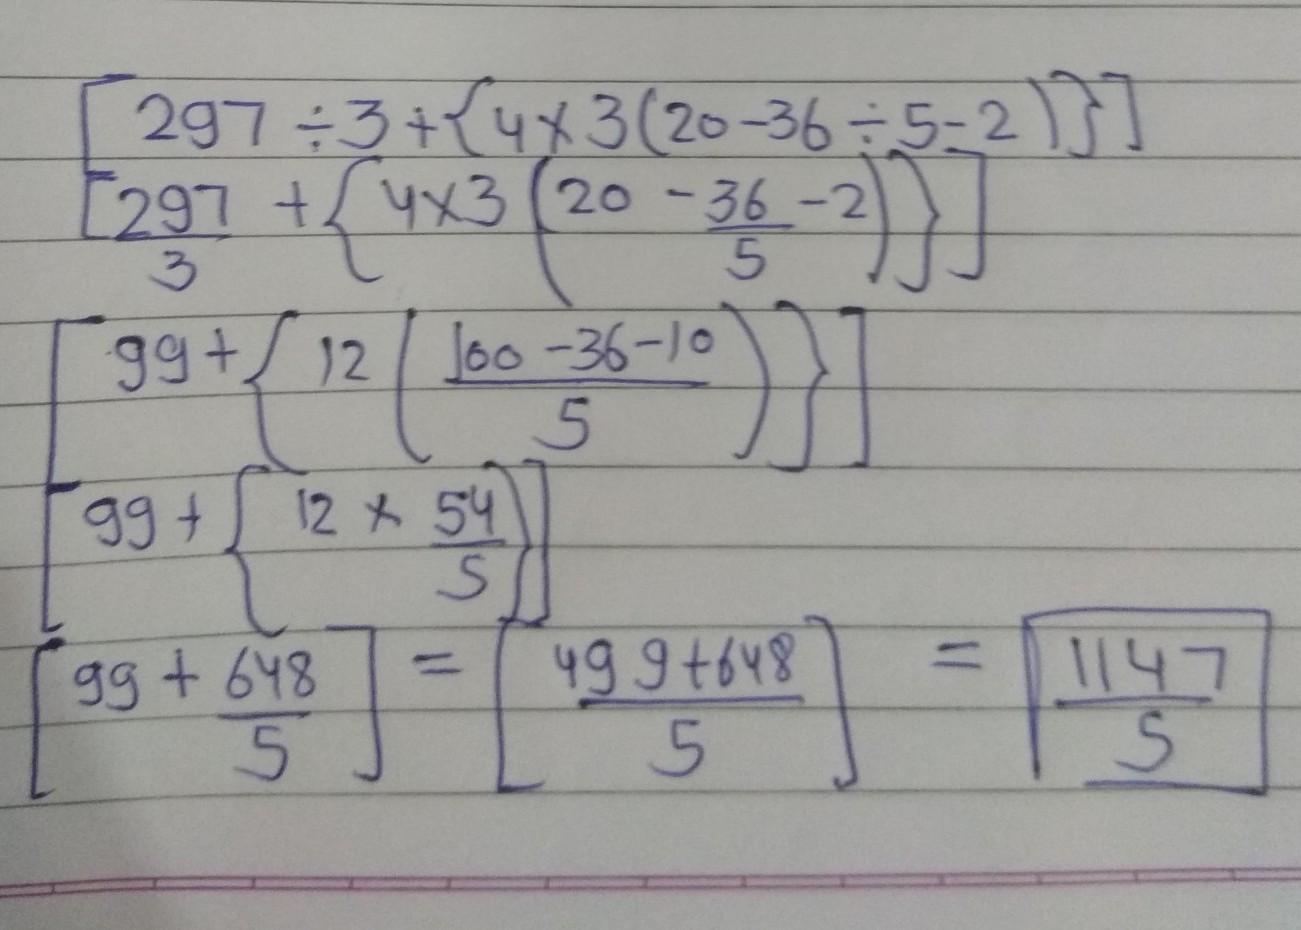 [297 ÷ 3 + {4 × 3(20 - 36 ÷ 5 - 2)}]
[297/3 + {4 × 3(20 - 36/5 - 2)}]
[99 + {12((100 - 36 - 10)/5)}]
[99 + {12 × 54/5}]
[99 + 648/5] = [(499 + 648)/5] = 1147/5